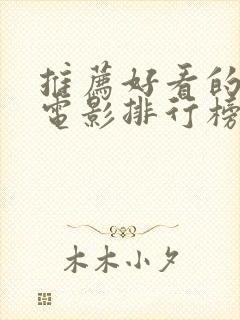 推薦好看的
電影排行榜
木木小夕